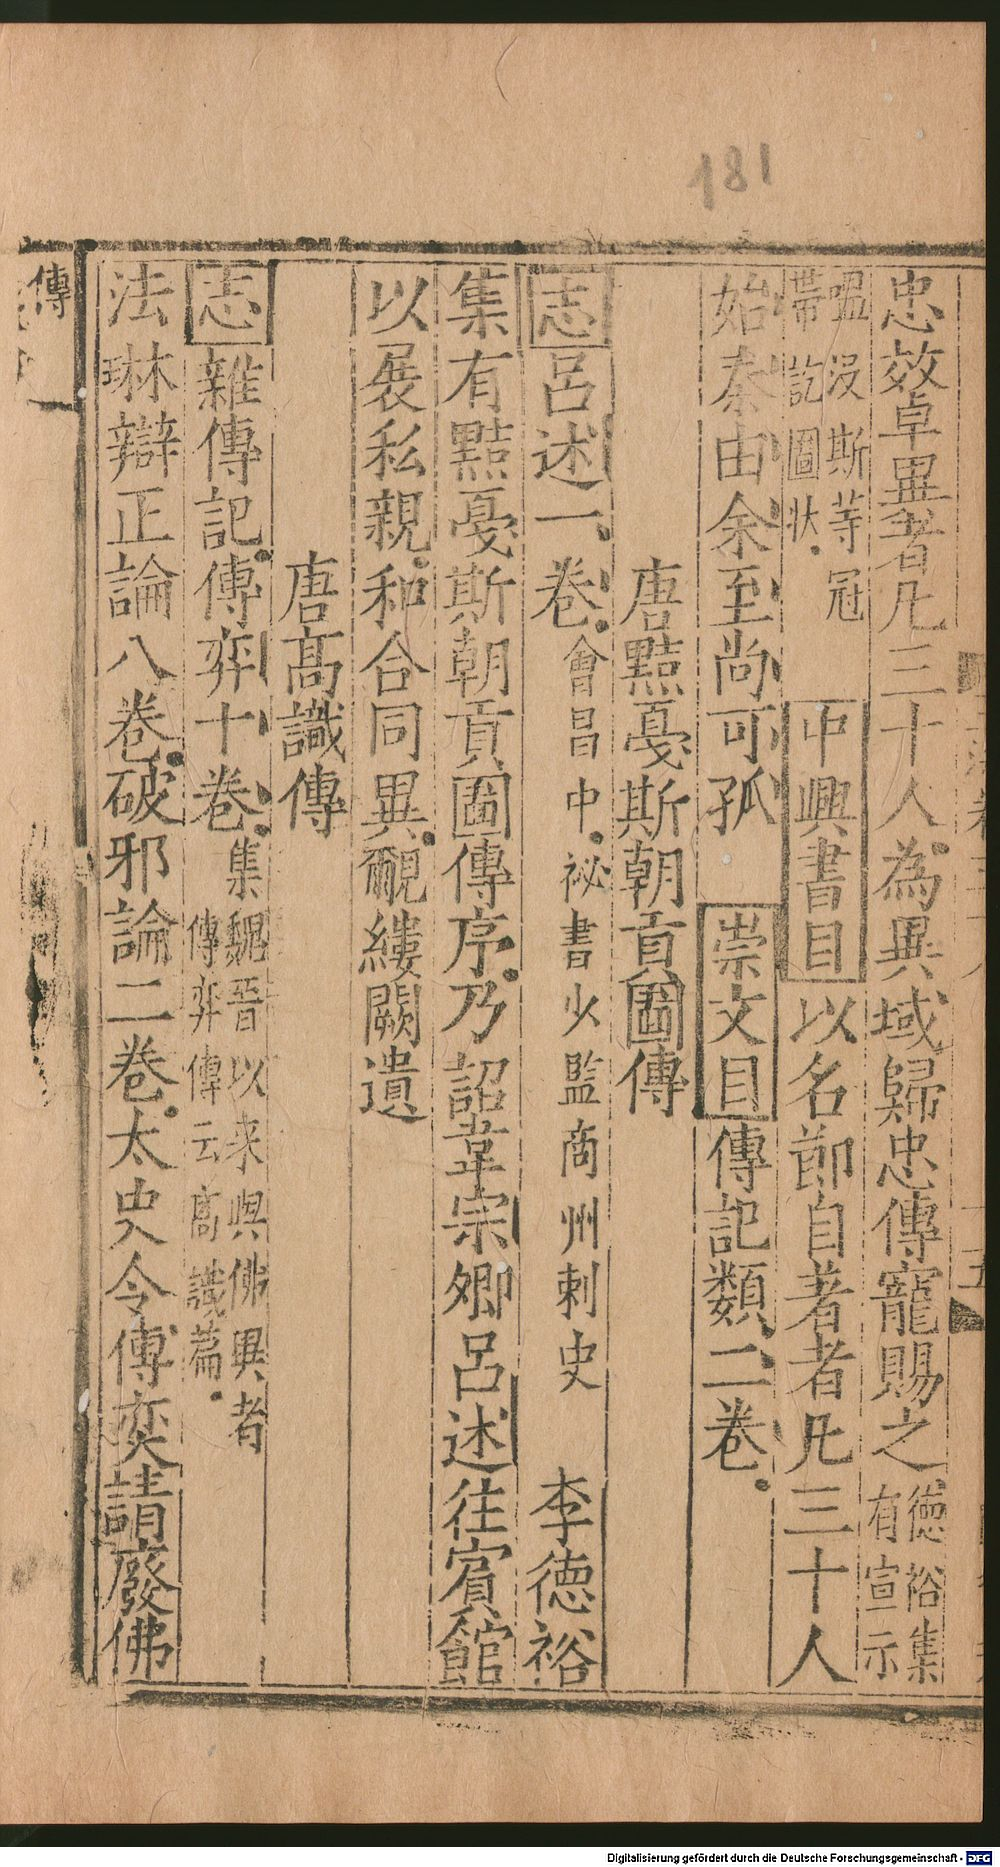 181
忠效卓異者凡三十人為異域歸忠傳寵賜之德裕集有宣示
嗢沒斯等冠帶訖圖状中興書目以名節自著者凡三十人
始秦由余至尚可孤 崇文目傳記類二卷
唐黠戛斯朝貢圖傳
志呂述一卷會昌中祕書少監商州刺史 李德裕
集有黠戛斯朝貢圖傳序乃詔韋宗卿呂述往賓館
以展私親和合同異覼縷闕遺
唐高識傳
志雜傳記傅弈十卷集魏晉以来與佛異者傅弈傳云高識篇
法琳辯正論八卷破邪論二卷太史令傅奕請廢佛
傳
Digitalisierung gefördert durch die Deutsche Forschungsgemeinschaft - DFG